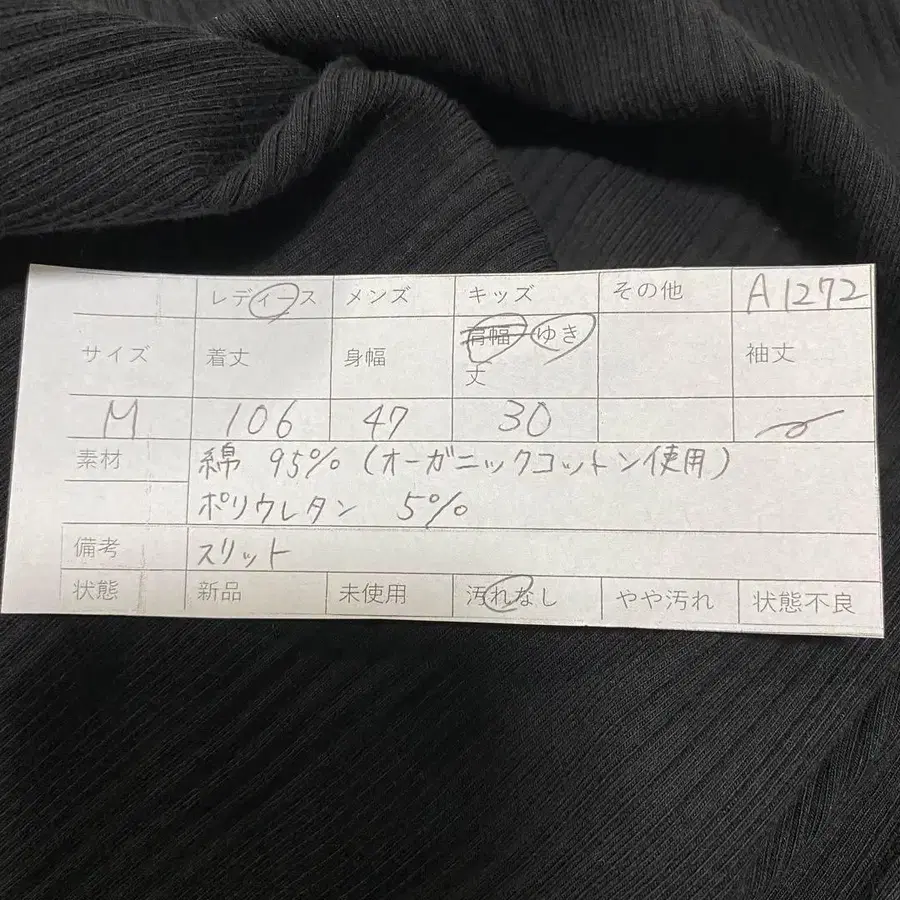 レディース メンズ キッズ その他 A1272
サイズ 着丈 身幅 肩幅 ゆき丈 袖丈
M 106 47 30
素材 綿 95% (オーガニックコットン使用)
ポリウレタン 5%
備考 スリット
状態 新品 未使用 汚れなし やや汚れ 状態不良